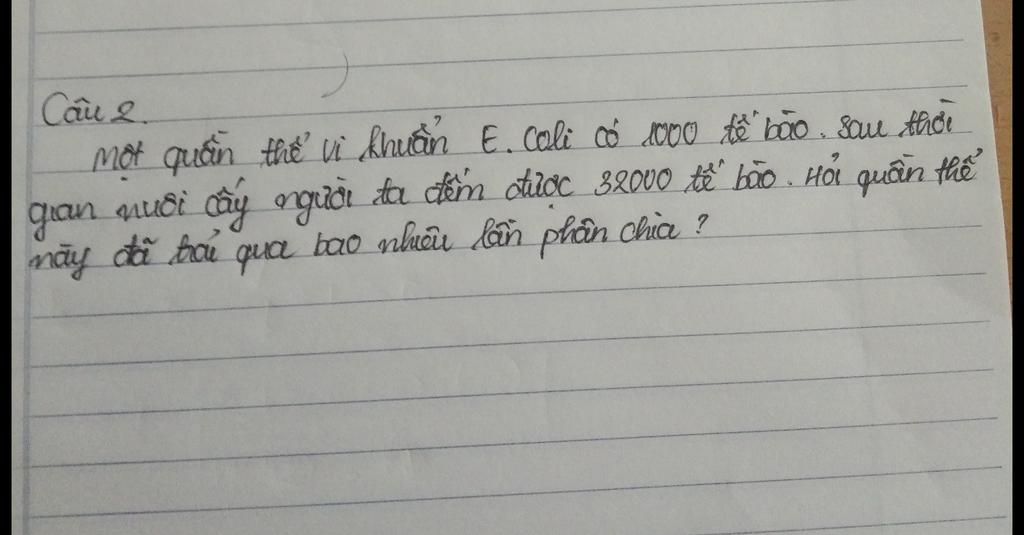 Câu 2.
Một quần thể vi khuẩn E. Coli có 1000 tế bào. Sau thời
gian nuôi cấy người ta đếm được 32000 tế bào. Hỏi quần thể
này đã trải qua bao nhiêu lần phân chia?